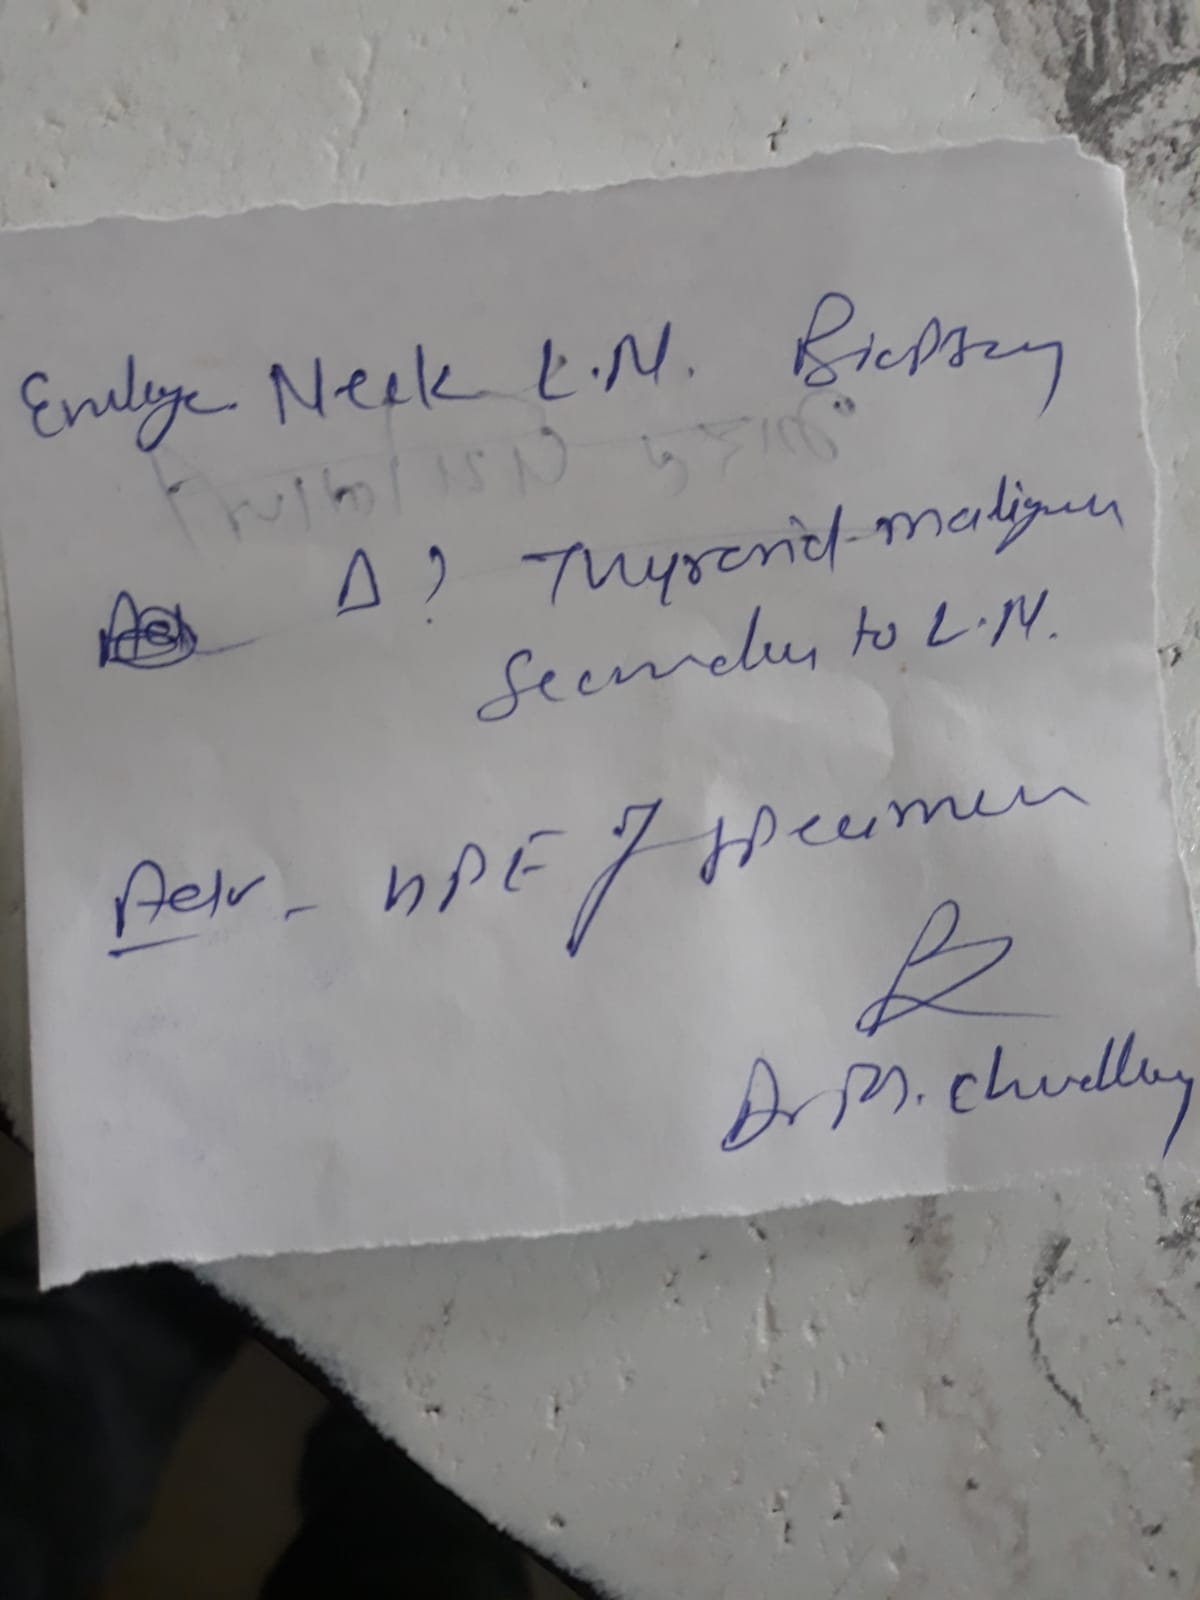 Enlarge Neck L.N. Biopsy
Δ ? Thyroid malignan
Secondary to L.N.
Adv - HPE of specimen
Dr M. Chudhary